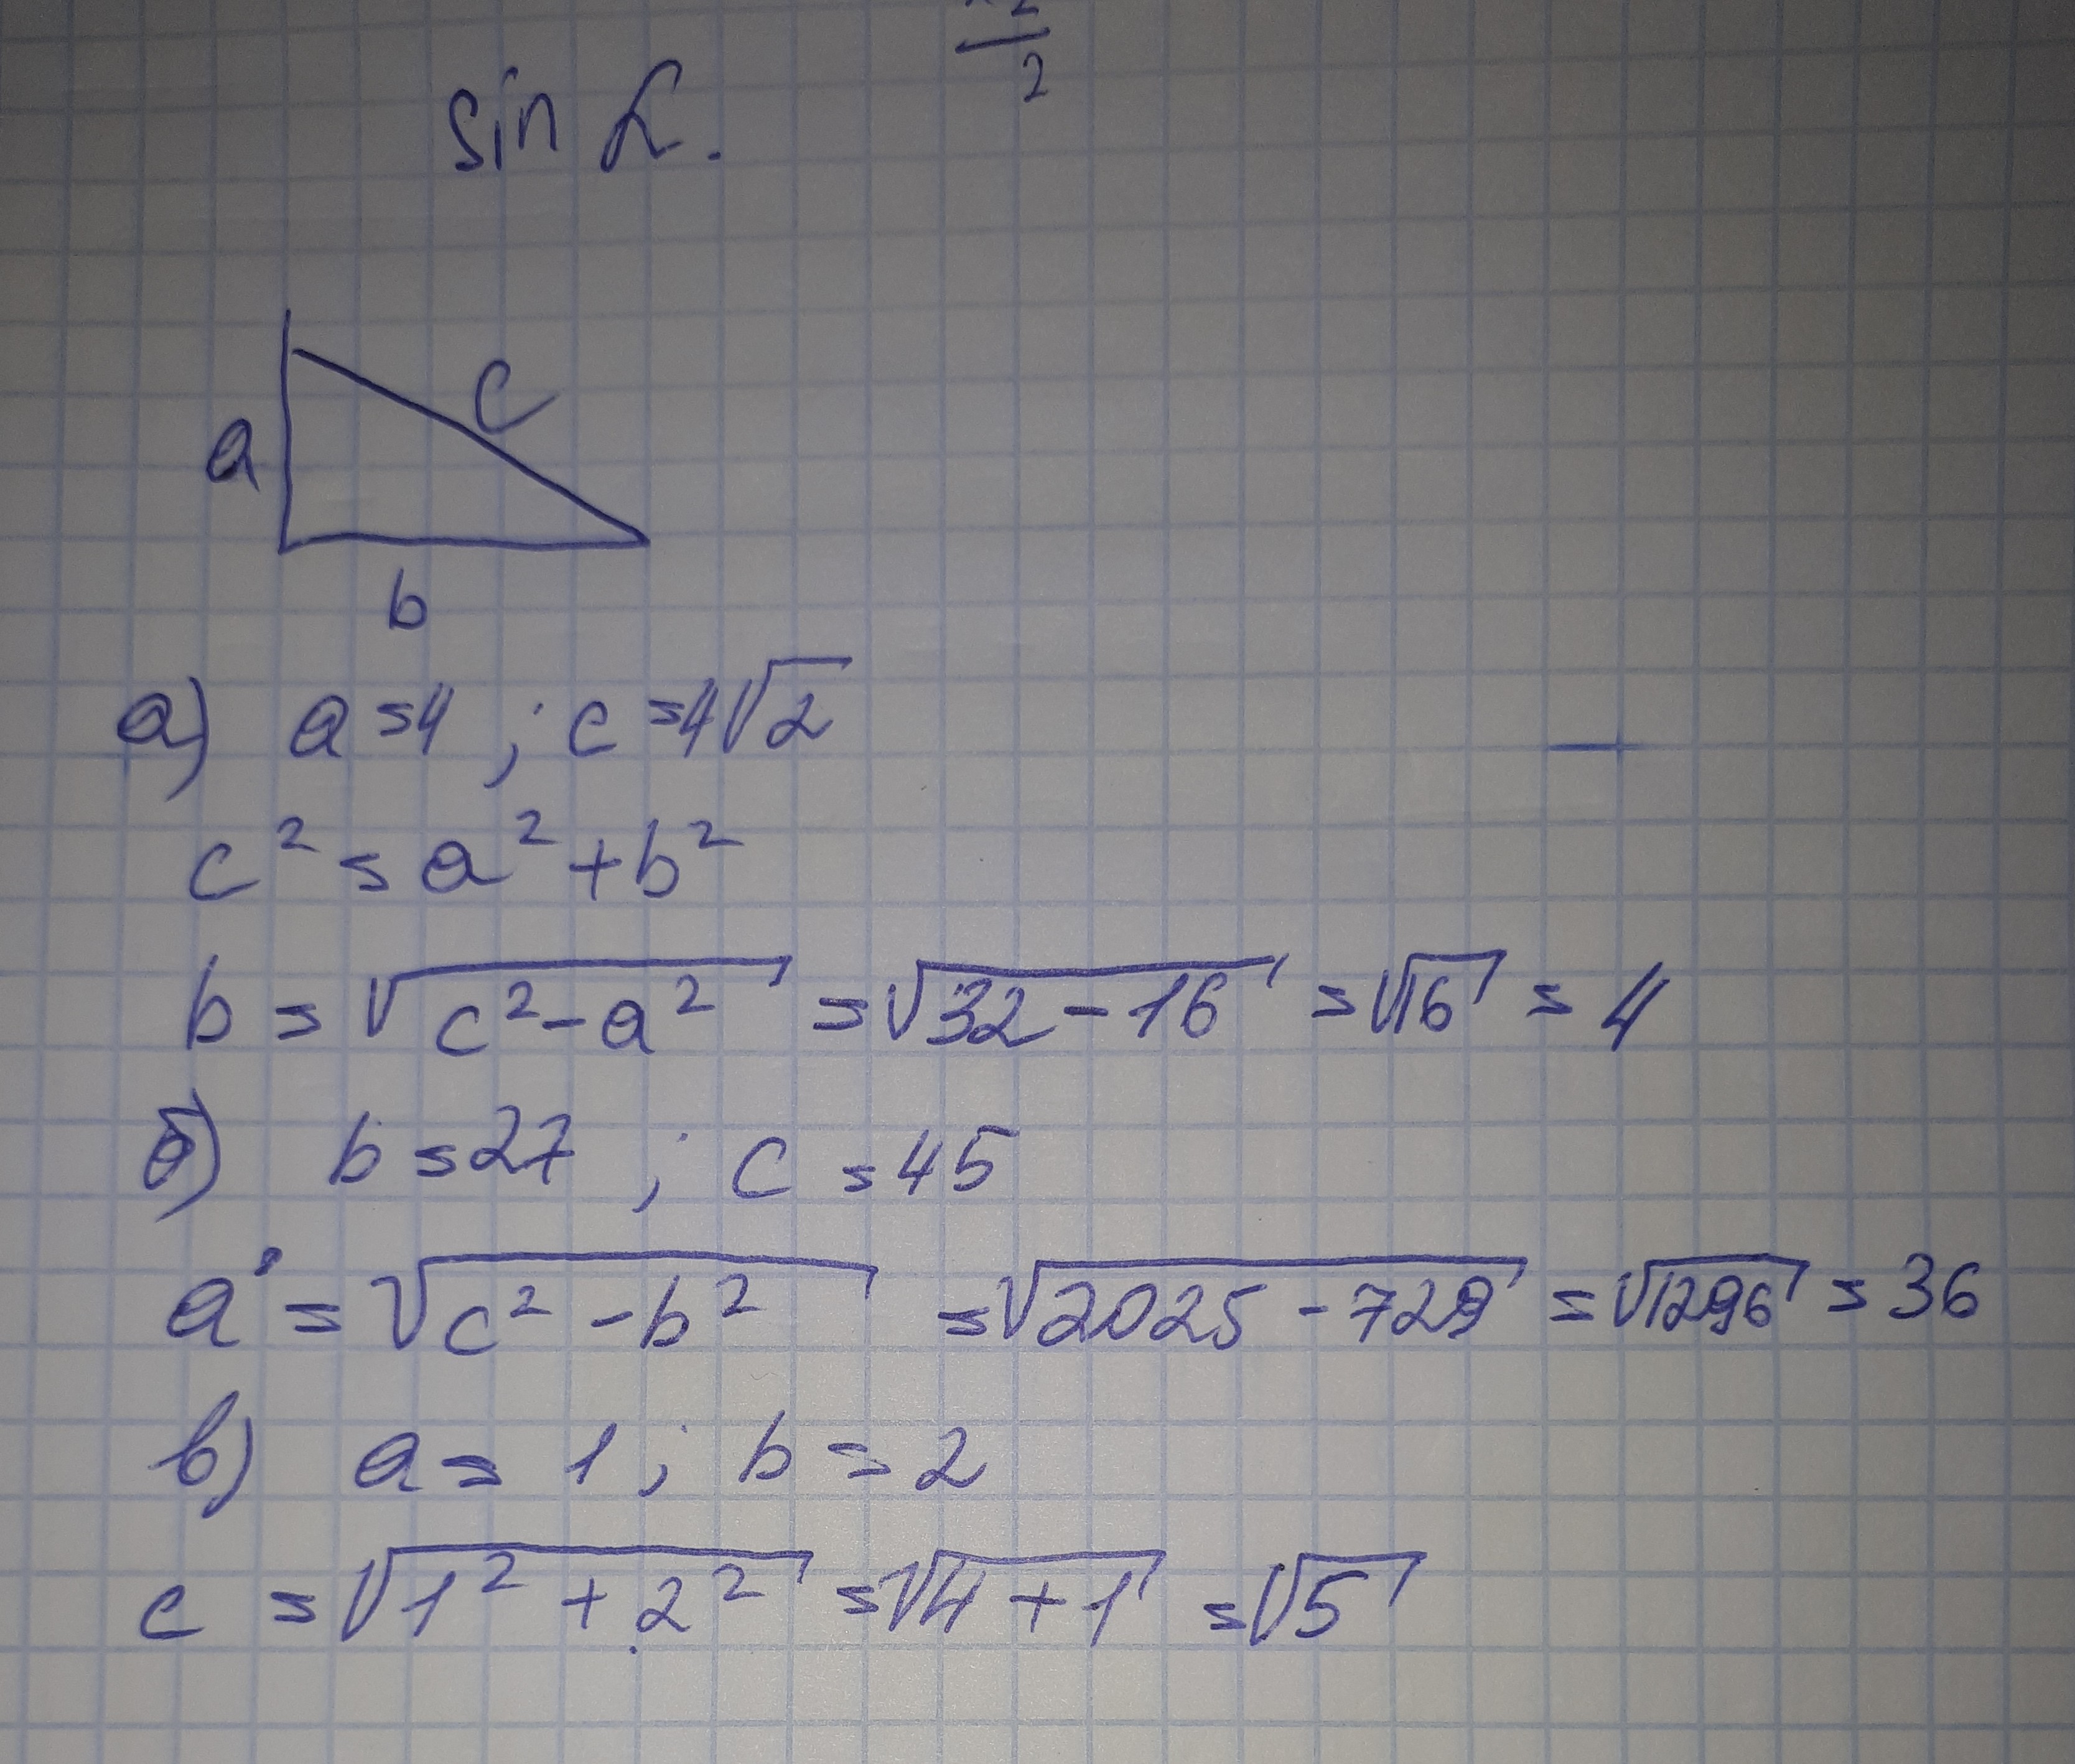 2
sin α.
a
c
b
а) a = 4 ; c = 4√2
c² = a² + b²
b = √(c² - a²) = √(32 - 16) = √16 = 4
б) b = 27 ; c = 45
a = √(c² - b²) = √(2025 - 729) = √1296 = 36
в) a = 1 ; b = 2
c = √(1² + 2²) = √(4 + 1) = √5